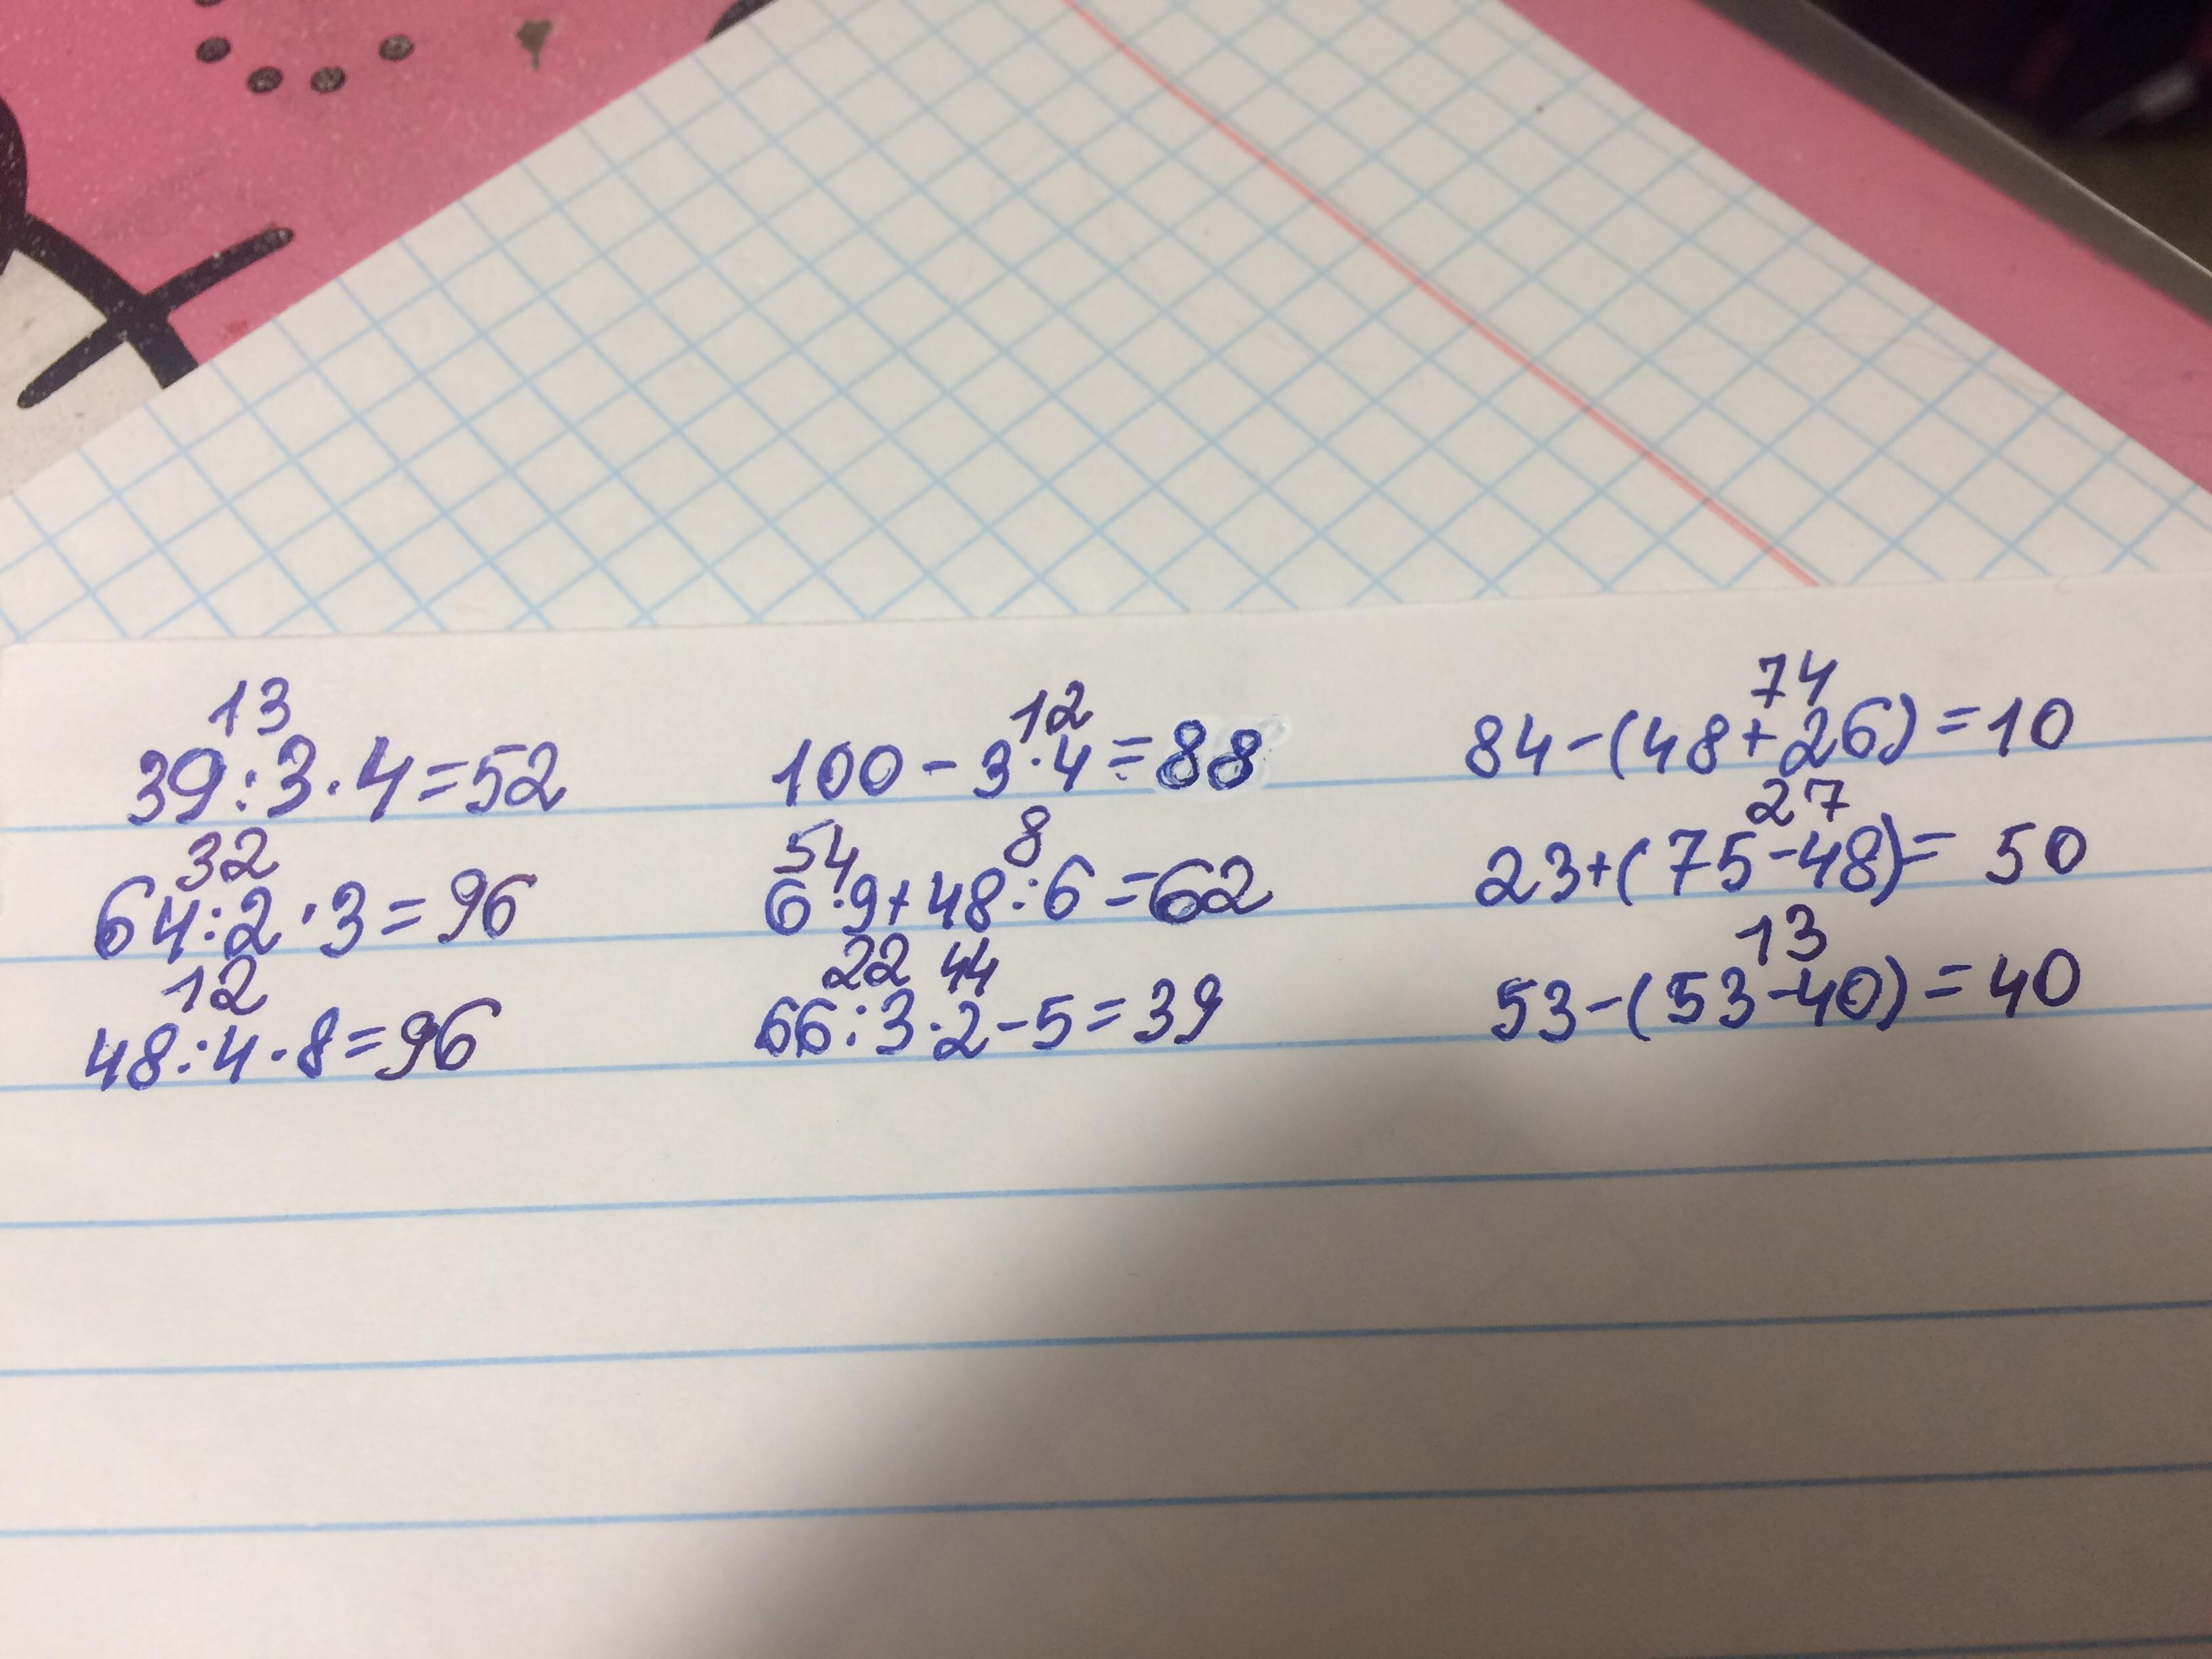 13
39:3·4=52
32
64:2·3=96
12
48:4·8=96
12
100-3·4=88
54 8
6·9+48:6=62
22 44
66:3·2-5=39
74
84-(48+26)=10
27
23+(75-48)=50
13
53-(53-40)=40